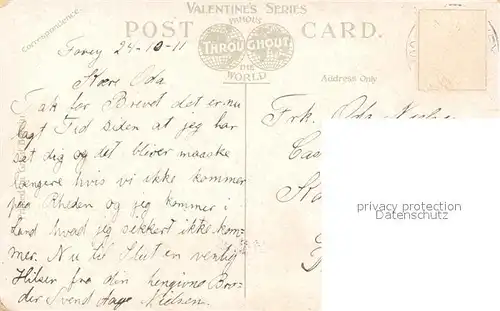 VALENTINE'S SERIES
FAMOUS
POST CARD.
THROUGHOUT
THE
WORLD
Correspondence.
Address Only
Fovey 24-10-11
Kære Oda
Tak for Brevet det er nu
lagt Tid siden at jeg har
set dig og det bliver maaske
længere hvis vi ikke kommer
paa Rheden og jeg kommer i
Land hvad jeg sikkert ikke kom-
mer. Nu til Slut en venlig
Hilsen fra din hengivne Bro-
der Svend Aage Nielsen.
Frk. Oda
privacy protection
Datenschutz